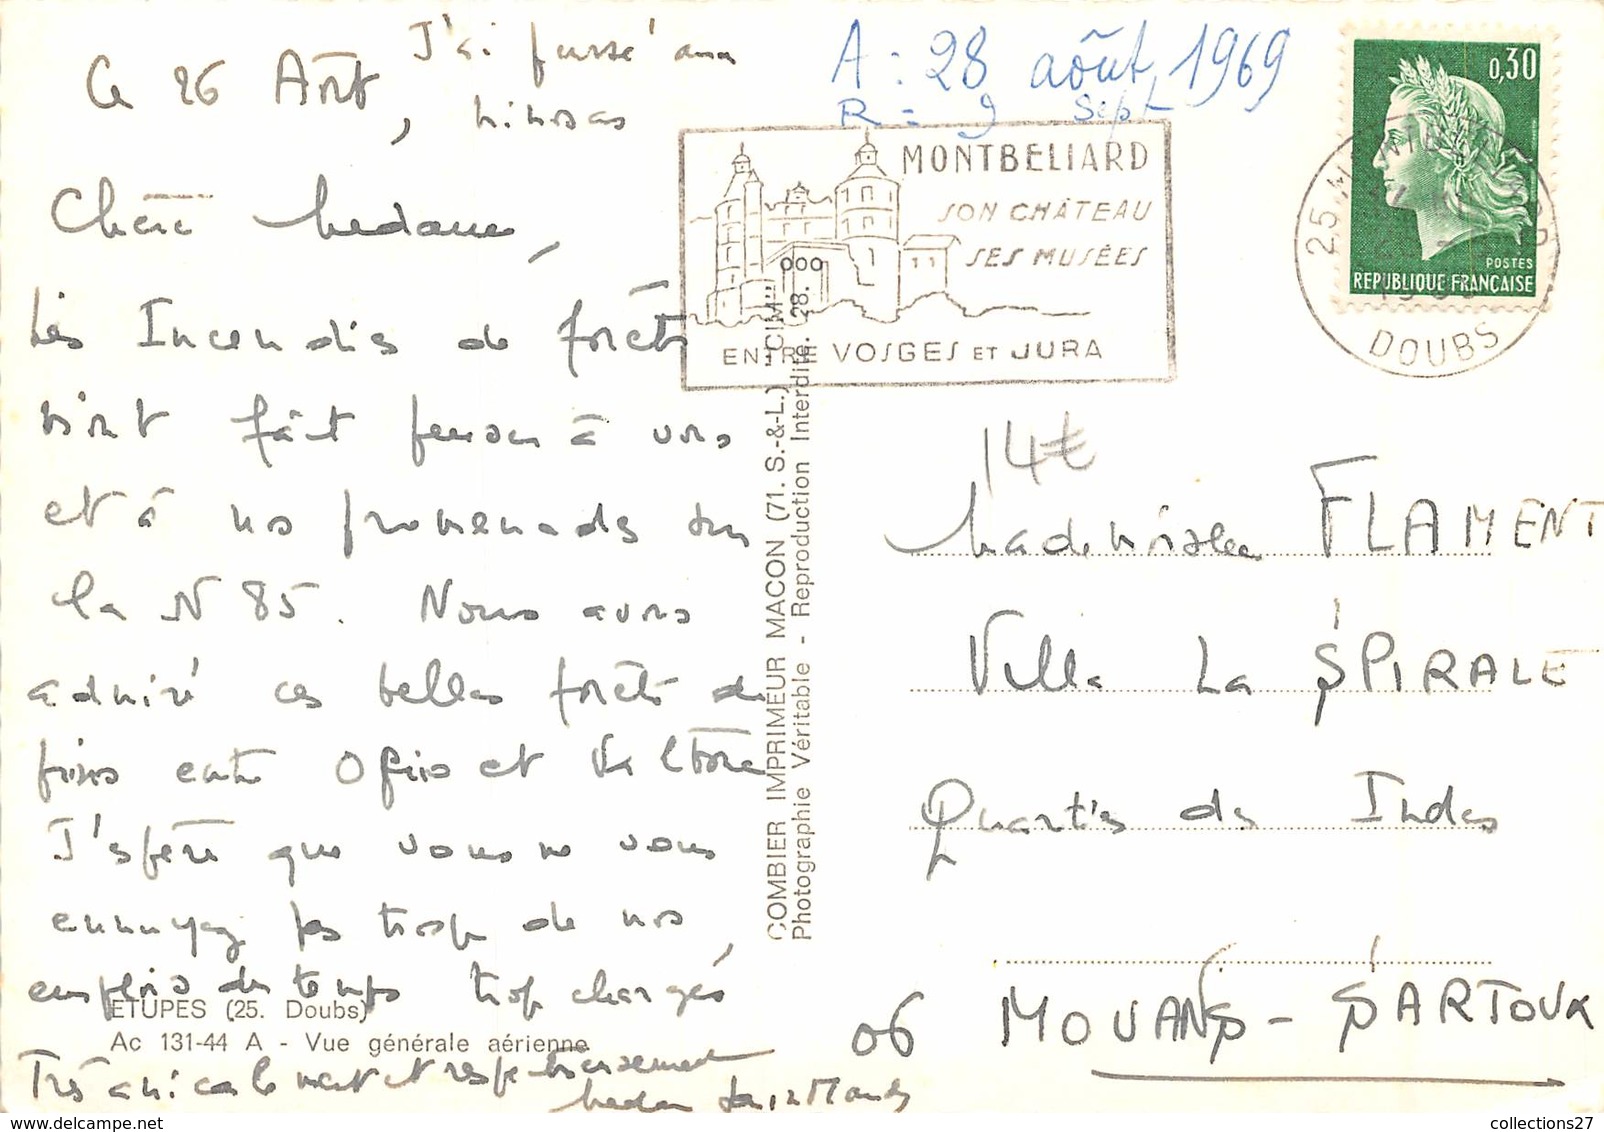 Ce 26 Août, J'ai pensé aux
mimosas
Chère Madame,
Les Incendies de forêts
m'ont fait penser à vous
et à nos promenades sur
la N 85. Nous avons
admiré ces belles forêts de
pins entre Opio et Valbonne
J'espère que vous ne vous
ennuyez pas trop de nos
emplois du temps trop chargés,
Très amicalement et respectueusement
A : 28 août 1969
R = 9 Sept
MONTBELIARD
SON CHÂTEAU
SES MUSÉES
ENTRE VOSGES ET JURA
0,30
POSTES
REPUBLIQUE FRANÇAISE
25 MONTBELIARD
DOUBS
COMBIER IMPRIMEUR MACON (71. S.-&-L.) "CIM"
Photographie Véritable - Reproduction Interdite. 28. 000
14€
Mademoiselle FLAMENT
Villa La SPIRALE
Quartier des Indes
06 MOUANS-SARTOUX
ETUPES (25. Doubs)
Ac 131-44 A - Vue générale aérienne
collections27